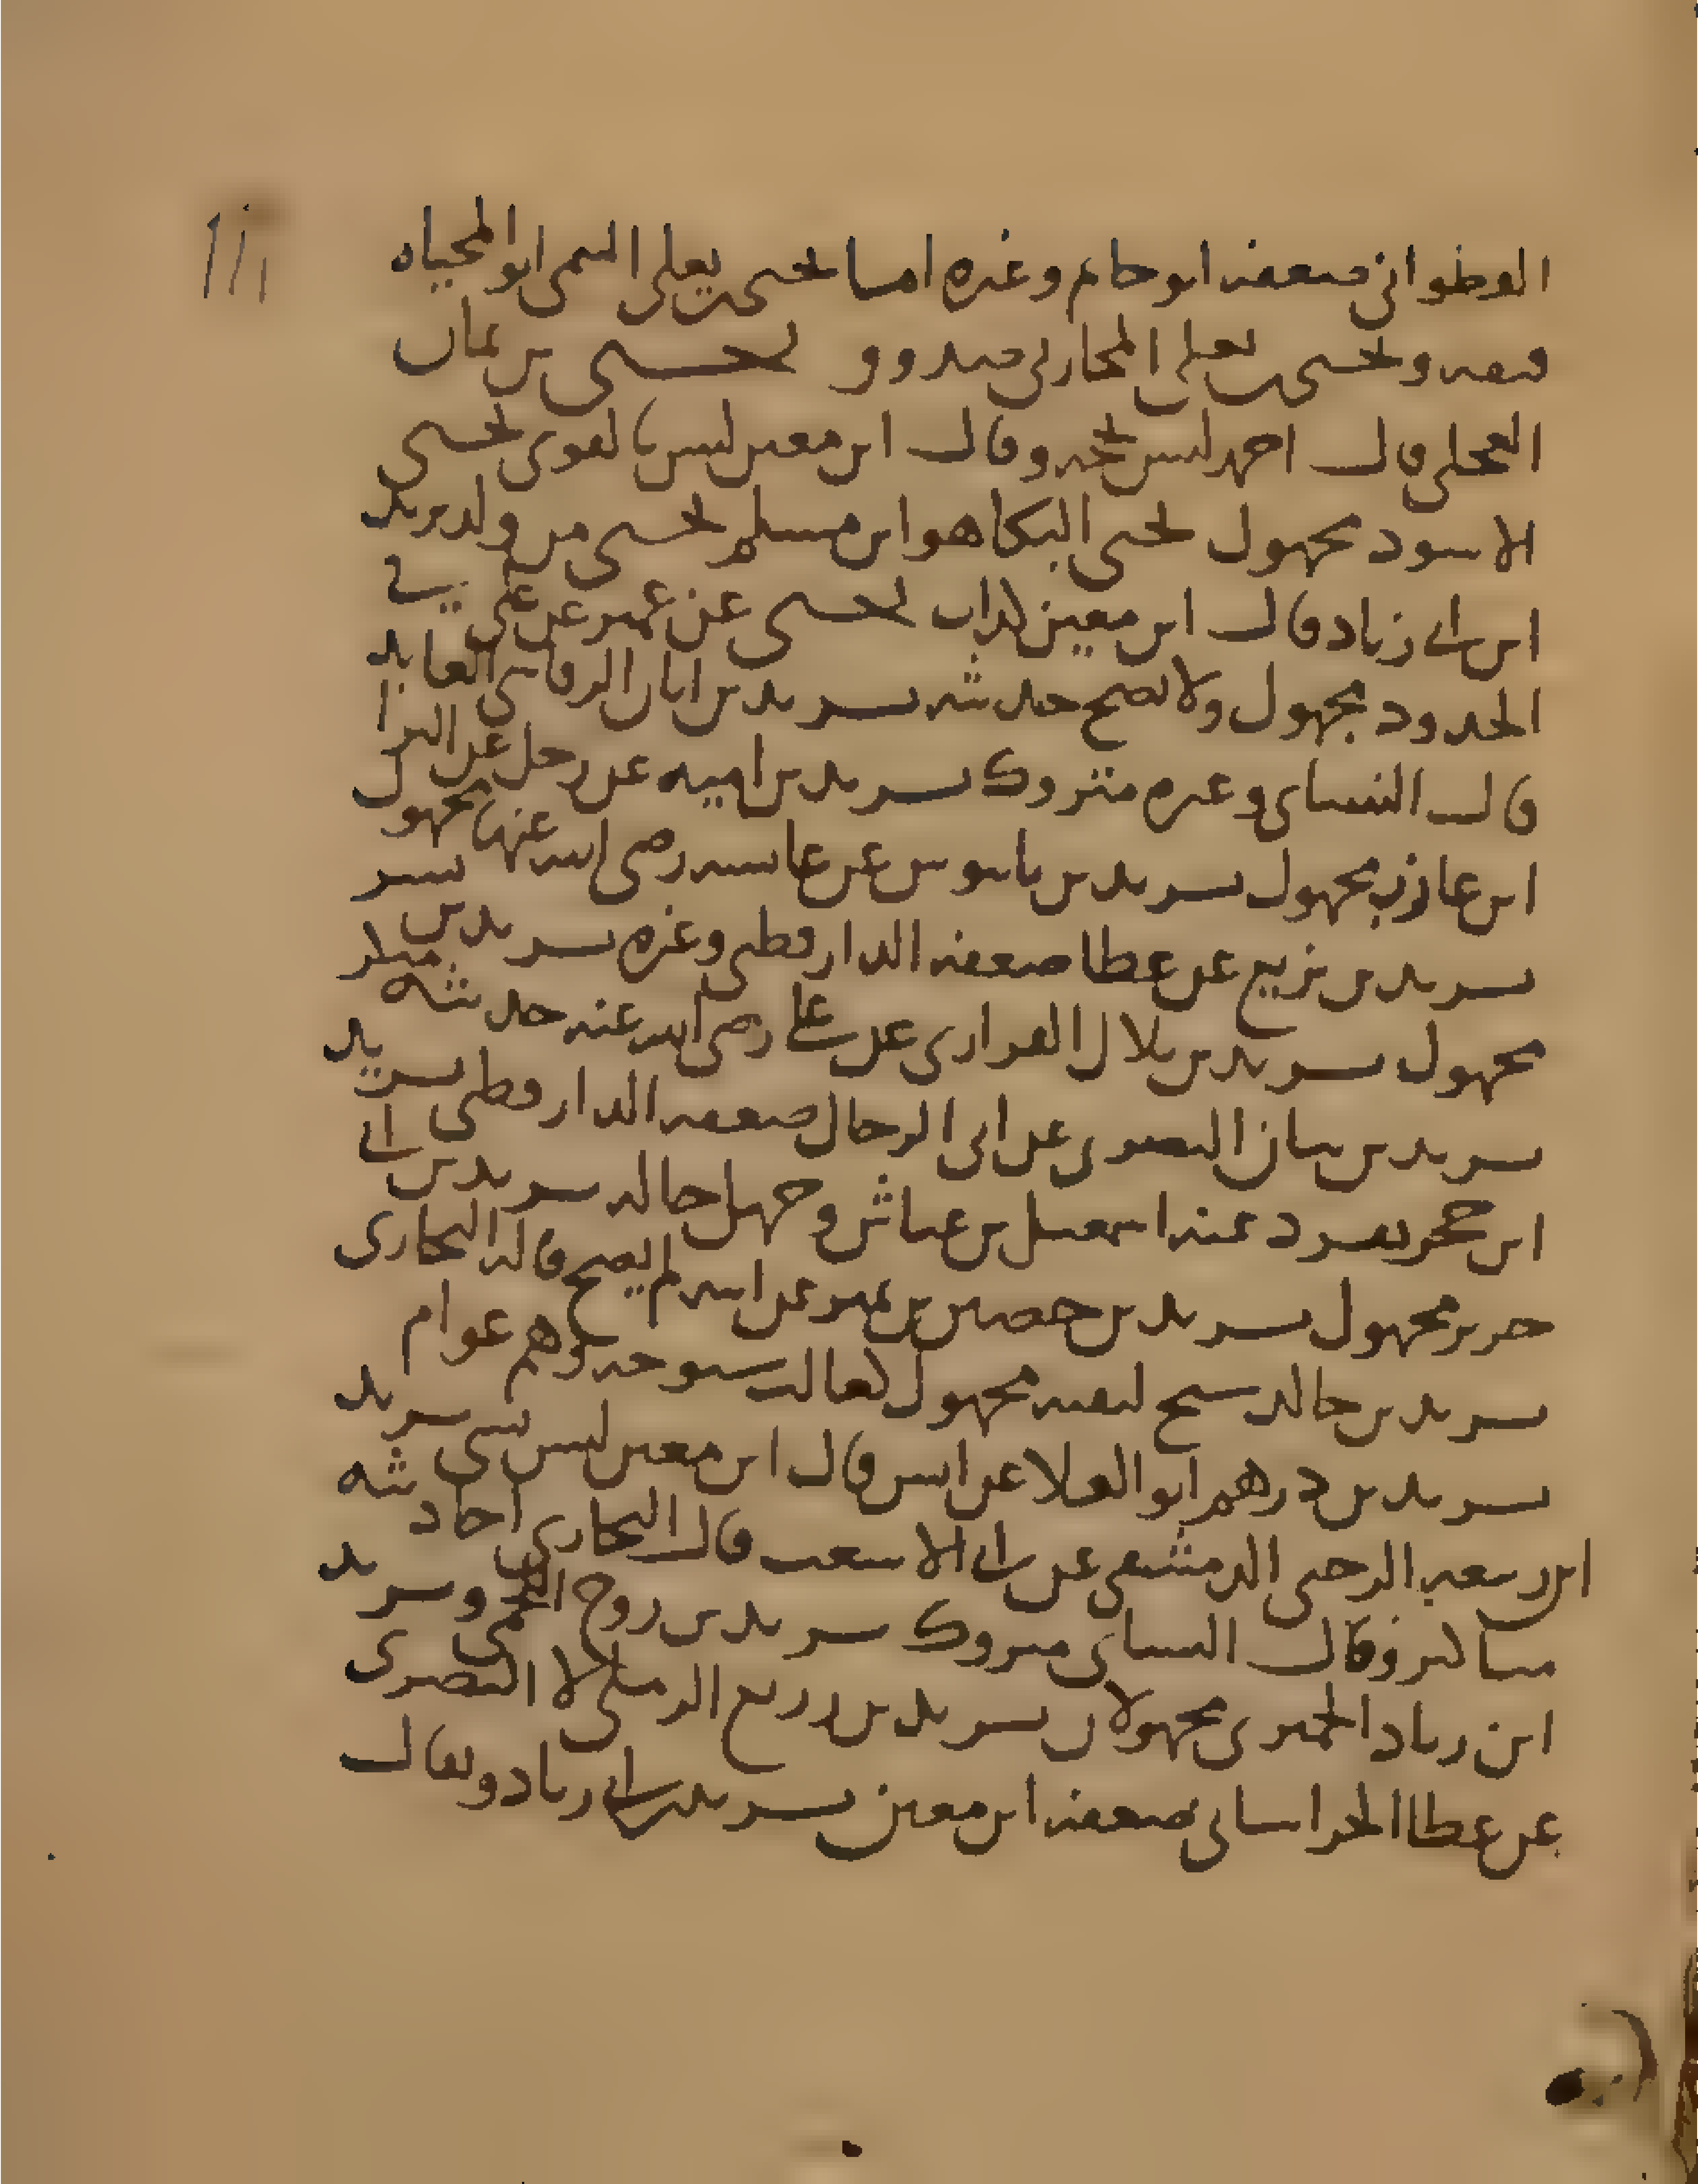 القطواني ضعفه ابو حاتم وغيره اما يحيى بن يعلى التيمي ابو المحياه
فثقه ويحيى بن يعلى المحاربي صدوق يحيى بن يمان
العجلي قال احمد ليس بحجه وقال ابن معين ليس بالقوى يحيى
الاسود مجهول يحيى البكا هو ابن مسلم يحيى من ولد يزيد
ابن ابي زياد قال ابن معين كذاب يحيى عن عمير عن علي في
الحدود مجهول ولا يصح حديثه يزيد بن ابان الرقاشي العابد
قال النسائي وغيره متروك يزيد بن اميه عن رجل عن البرا
ابن عازب مجهول يزيد بن بابنوس عن عائشه رضي الله عنها مجهول
يزيد بن بزيع عن عطا ضعفه الدارقطني وغيره يزيد بن بشر
مجهول يزيد بن بلال الفزاري عن علي رضي الله عنه حديثه منكر
يزيد بن بيان البصري عن ابي الرحال ضعفه الدارقطني يزيد
ابن حجر تفرد عنه اسمعيل بن عياش وجهل حاله يزيد بن ابي
حريز مجهول يزيد بن حصين بن نمير عن ابيه لم يصح قاله البخاري
يزيد بن خالد شيخ لبقيه مجهول
يزيد بن درهم ابو العلا عن انس قال ابن معين ليس بشي يزيد
ابن ربيعه الرحبي الدمشقي عن ابي الاشعث قال البخاري احاديثه
مناكير وقال النسائي متروك يزيد بن روح اللخمي ويزيد
ابن زياد الحميري مجهولان يزيد بن زريع الرملي لا البصري
عن عطا الخراساني ضعفه ابن معين يزيد بن ابي زياد ويقال